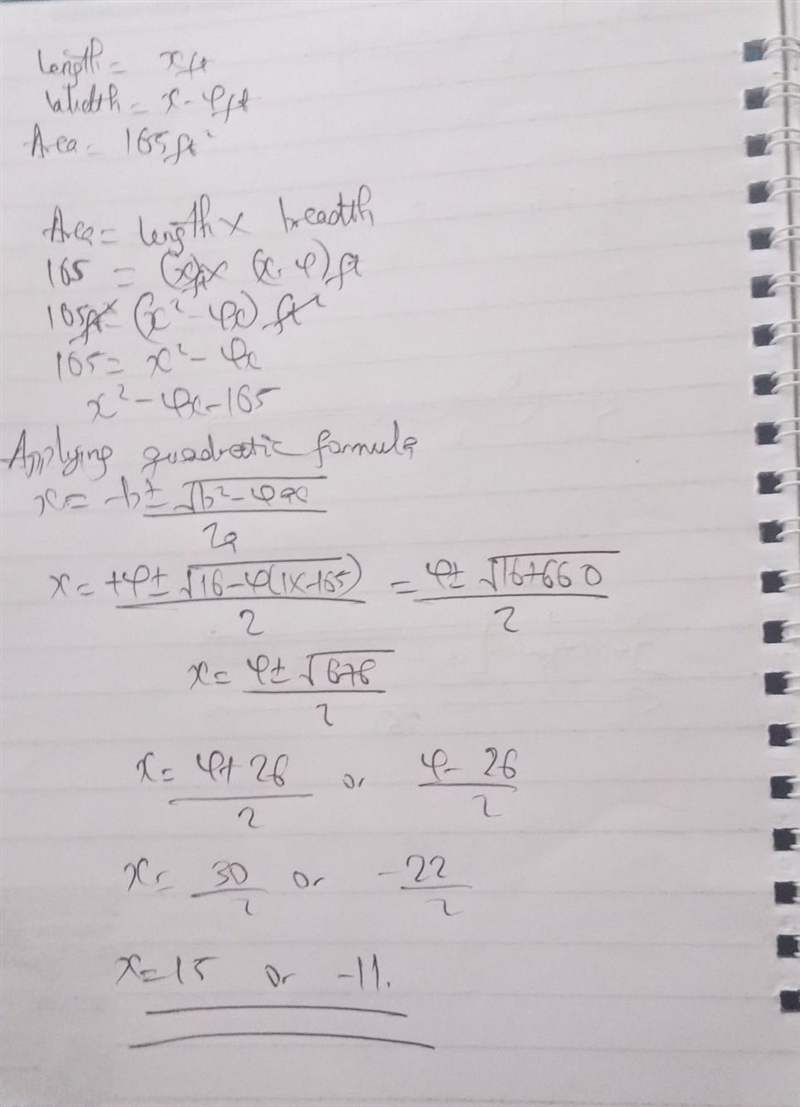 Length = x ft
Width = x - 4 ft
Area = 165 ft²
Area = length × breadth
165 = (x) ft × (x - 4) ft
165 ft² = (x² - 4x) ft²
165 = x² - 4x
x² - 4x - 165
Applying quadratic formula
x = -b ± √(b² - 4ac) / 2a
x = +4 ± √(16 - 4(1x-165)) / 2 = 4 ± √(16+660) / 2
x = 4 ± √676 / 2
x = 4 + 26 / 2 or 4 - 26 / 2
x = 30 / 2 or -22 / 2
x = 15 or -11.